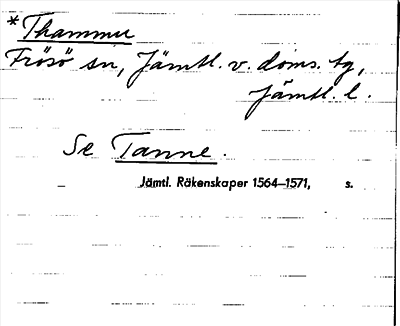 *Thammu
Frösö sn, Jämtl. v. doms. tg,
Jämtl. l.
Se Tanne.
Jämtl. Räkenskaper 1564–1571, s.